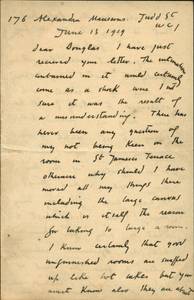 176 Alexandra Mansions. Judd St
WC1
June 13 1919
Dear Douglas I have just
received your letter. The intimation
contained in it would certainly
come as a shock were I not
sure it was the result of
a misunderstanding. There has
never been any question of
my not being keen on the
room in St James's Terrace
otherwise why should I have
moved all my things there
including the large canvas
which is itself the reason
for taking so large a room.
I know certainly that good
unfurnished rooms are snaffled
up like hot cakes but you
must know also they are